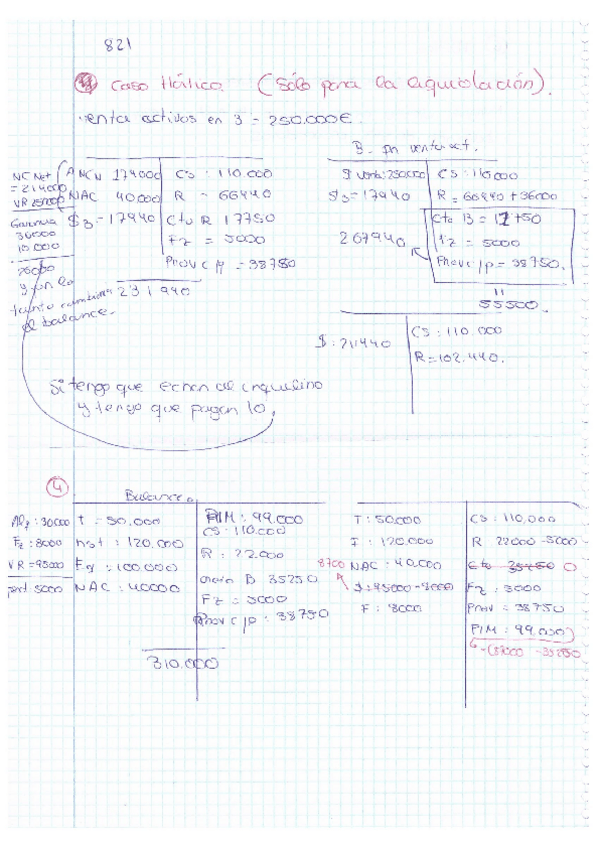 821
Caso Hótico (Sólo para la liquidación).
venta activos en 3 = 250.000€.
B. en venta act.
NC Net = 214000
VR 250000
Ganancia 36000
10.000
26000
y en lo
tanto cambiara
el balance.
ANCN 174000 CS: 110.000
NAC 40.000 R - 66440
$3 = 17940 Cto R 17750
Fz = 5000
Prov c/p = 38750
231940
$ venta: 250000 CS: 110000
$3 = 17940 R = 66440 + 36000
267940
Cto B = 17750
Fz = 5000
Prov c/p = 38750.
55500.
$: 211440 CS: 110.000
R = 102.440.
Si tengo que echar al inquilino
y tengo que pagarlo.
4
Balance
Alq: 30000
Fz: 8000
VR = 95000
perd 5000
T = 50.000 PIM: 99.000
CS: 110.000
Inst: 120.000 R: 22.000
Eq: 100.000 B 35250
NAC: 40000 Fz = 5000
Prov c/p: 38750
310.000
T: 50.000 CS: 110.000
I: 120.000 R 22000 - 5000 -
8700 NAC: 40.000 Cto 35250 0
$: 95000 - 8000 Fz: 5000
F: 8000 Prov = 38750
PIM: 99.000